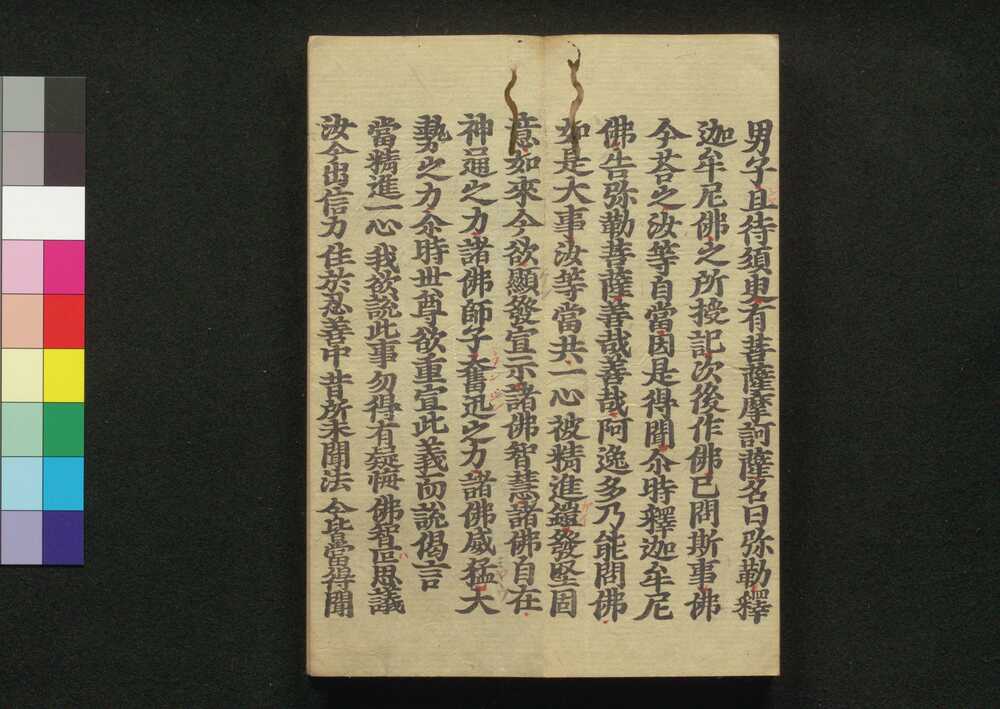 男子且待須臾有菩薩摩訶薩名曰弥勒釋
迦牟尼佛之所授記次後作佛已問斯事佛
今荅之汝等自當因是得聞尒時釋迦牟尼
佛告弥勒菩薩善哉善哉阿逸多乃能問佛
如是大事汝等當共一心被精進鎧發堅固
意如來今欲顯發宣示諸佛智慧諸佛自在
神通之力諸佛師子奮迅之力諸佛威猛大
勢之力尒時世尊欲重宣此義而說偈言
當精進一心 我欲說此事 勿得有疑悔 佛智叵思議
汝今出信力 住於忍善中 昔所未聞法 今皆當得聞